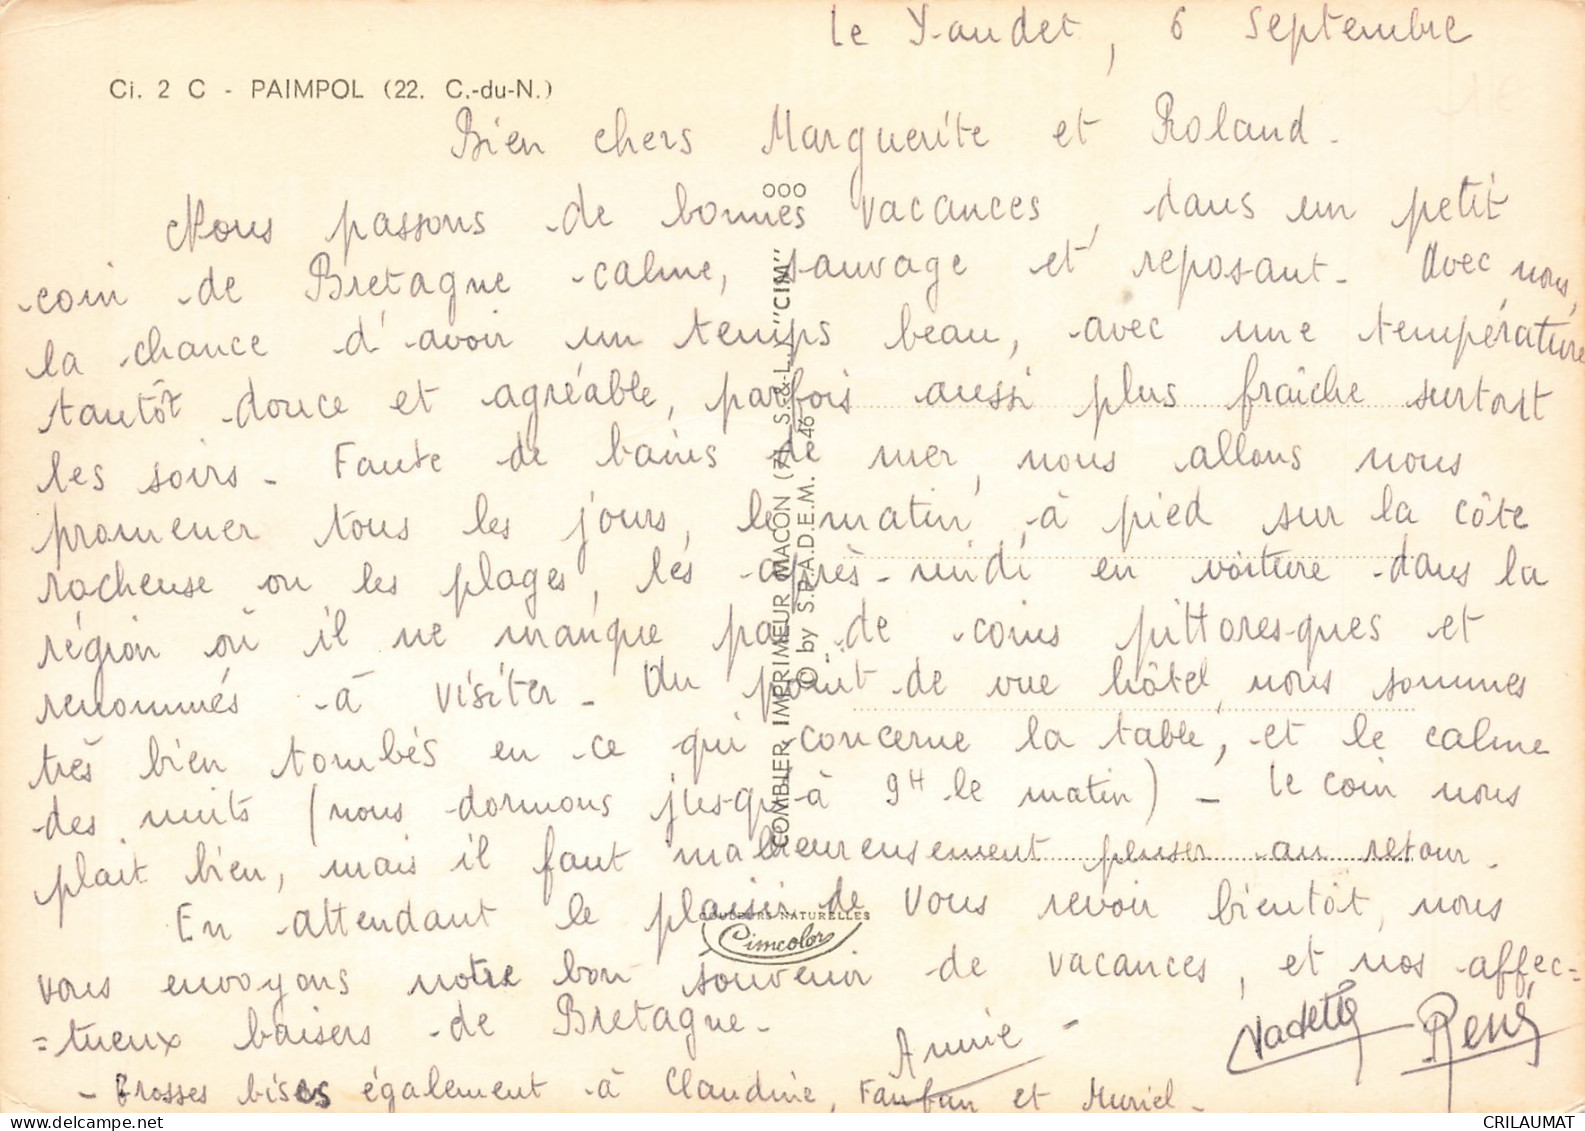 Le Yaudet, 6 Septembre
Ci. 2 C - PAIMPOL (22. C.-du-N.)
Bien chers Marguerite et Roland.
Nous passons de bonnes vacances, dans un petit
coin de Bretagne calme, sauvage et reposant. Avec nous,
la chance d'avoir un temps beau, avec une température
tantôt douce et agréable, parfois aussi plus fraîche surtout
les soirs. Faute de bains de mer, nous allons nous
promener tous les jours, le matin, à pied sur la côte
rocheuse ou les plages, les après-midi en voiture dans la
région où il ne manque pas de coins pittoresques et
renommés à visiter. Du point de vue hôtel, nous sommes
très bien tombés en ce qui concerne la table, et le calme
des nuits (nous dormons jusqu'à 9H le matin) - le coin nous
plait bien, mais il faut malheureusement penser au retour.
En attendant le plaisir de vous revoir bientôt, nous
vous envoyons notre bon souvenir de vacances, et nos affec=
=tueux baisers de Bretagne.
Annie - Vadette René
- Grosses bises également à Claudine, Fanfan et Muriel.
COMBIER IMPRIMEUR MACON (71) S.-&-L. "CIM"
© by S.P.A.D.E.M. 46
COULEURS NATURELLES
Cimcolor
CRILAUMAT